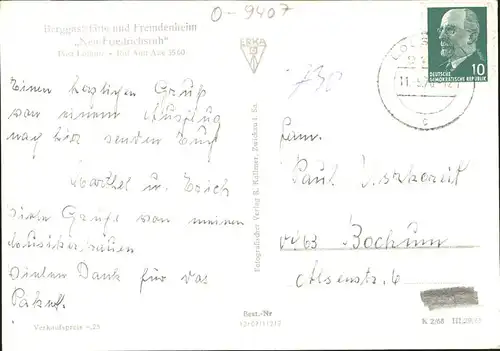 O-9407
Berggaststätte und Fremdenheim
„Neu-Friedrichsruh"
Ruf Amt Aue 3560
ERKA
11.
10
DEUTSCHE
DEMOKRATISCHE REPUBLIK
c
Einen herzlichen Gruß
von einem Ausflug
nach hier senden Euch
Marthel u. Erich
viele Grüße von meinen
Vielen Dank für das
Paket.
Fam.
Paul
463 Bochum
Alsenstr. 6
Fotografischer Verlag R. Kallmer, Zwickau i. Sa.
Verkaufspreis -,25
Best.-Nr
K 2/68